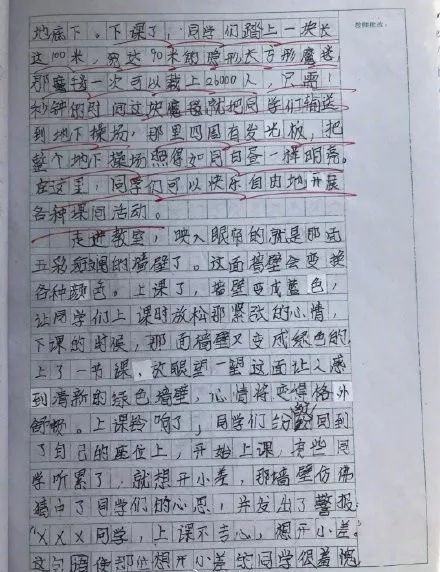 教师批改：
地底下。下课了，同学们踏上一块长
达100米，宽达90米的隐形长方形魔毯，
那魔毯一次可以载上26000人，只需1
秒钟的时间这块魔毯就把同学们输送
到地下操场，那里四周有发光板，把
整个地下操场照得如同白昼一样明亮。
在这里，同学们可以快乐自由地开展
各种课间活动。
走进教室，映入眼帘的就是那面
五彩斑斓的墙壁了。这面墙壁会变换
各种颜色。上课了，墙壁变成蓝色，
让同学们上课时放松那紧张的心情，
下课的时候，那面墙壁又变成绿色的，
上了一节课，放眼望一望这面让人感
到清新的绿色墙壁，心情将变得格外
舒畅。上课铃响了，同学们纷纷回到
了自己的座位上，开始上课，有些同
学听累了，就想开小差，那墙壁仿佛
猜中了同学们的心思，并发出了警报：
“XXX同学，上课不专心，想开小差。”
这句话使那位想开小差的同学很羞愧